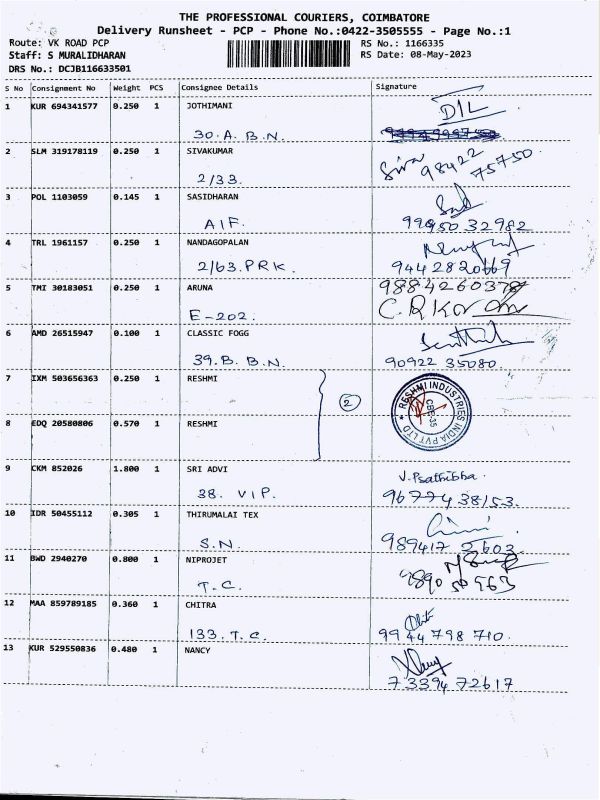 THE PROFESSIONAL COURIERS, COIMBATORE
Delivery Runsheet - PCP - Phone No.:0422-3505555 - Page No.:1
Route: VK ROAD PCP
RS No.: 1166335
Staff: S MURALIDHARAN
RS Date: 08-May-2023
DRS No.: DCJB116633501
S No Consignment No Weight PCS Consignee Details Signature
1 KUR 694341577 0.250 1 JOTHIMANI D/L
30.A. B.N.
2 SLM 319178119 0.250 1 SIVAKUMAR Siva 98422 75750.
2/33.
3 POL 1103059 0.145 1 SASIDHARAN
AIF. 99950 32982
4 TRL 1961157 0.250 1 NANDAGOPALAN
2/63. PRK. 9442820669
5 TMI 30183051 0.250 1 ARUNA 9884260378
E-202.
6 AMD 26515947 0.100 1 CLASSIC FOGG
39.B. B.N. 90922 35080.
7 IXM 503656363 0.250 1 RESHMI
2
8 EDQ 20580806 0.570 1 RESHMI
RESHMI INDUSTRIES INDIA PVT LTD
CBE-35
9 CKM 852026 1.800 1 SRI ADVI
38. VIP. 96774 38153.
10 IDR 50455112 0.305 1 THIRUMALAI TEX
S.N. 989417 2603
11 BWD 2940270 0.800 1 NIPROJET
T.C.
12 MAA 859789185 0.360 1 CHITRA
133. T.C. 9944 798 710.
13 KUR 529550836 0.480 1 NANCY
73394 72617